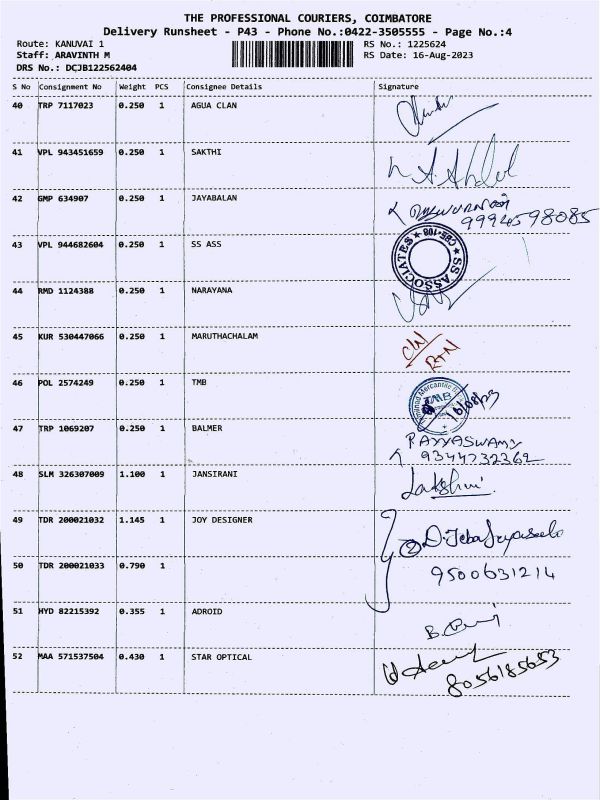 THE PROFESSIONAL COURIERS, COIMBATORE
Delivery Runsheet - P43 - Phone No.:0422-3505555 - Page No.:4
Route: KANUVAI 1
RS No.: 1225624
Staff: ARAVINTH M
RS Date: 16-Aug-2023
DRS No.: DCJB122562404
S No Consignment No Weight PCS Consignee Details Signature
40 TRP 7117023 0.250 1 AGUA CLAN
41 VPL 943451659 0.250 1 SAKTHI
42 GMP 634907 0.250 1 JAYABALAN
9994598085
43 VPL 944682604 0.250 1 SS ASS
SS ASSOCIATES ★ CBS-108 ★
44 RMD 1124388 0.250 1 NARAYANA
45 KUR 530447066 0.250 1 MARUTHACHALAM
RTN
46 POL 2574249 0.250 1 TMB
TMB 16/08/23
47 TRP 1069207 0.250 1 BALMER
P. AYYASWAMY
9344732362
48 SLM 326307009 1.100 1 JANSIRANI
Lakshmi
49 TDR 200021032 1.145 1 JOY DESIGNER
②
50 TDR 200021033 0.790 1
9500631214
51 HYD 82215392 0.355 1 ADROID
52 MAA 571537504 0.430 1 STAR OPTICAL
8056185653